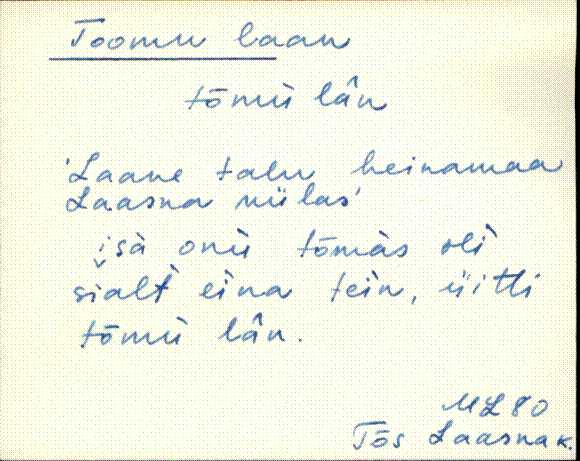 Toomu laan
tōmù lân
'Laane talu heinamaa
Laasna nülas'
isà onù tōmàs oli
šialt eina tein, üitti
tōmù lân.
ML 80
Tōs Laasna k.